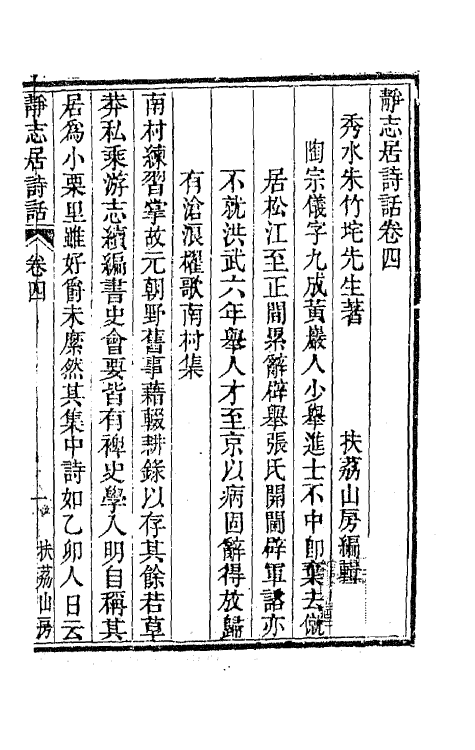 靜志居詩話卷四
秀水朱竹垞先生著　扶荔山房編輯
陶宗儀字九成黃巖人少舉進士不中卽棄去僦
居松江至正間累辭辟舉張氏開閫辟軍諮亦
不就洪武六年舉人才至京以病固辭得放歸
有滄浪櫂歌南村集
南村練習掌故元朝野舊事藉輟耕錄以存其餘若草
莽私乘游志續編書史會要皆有裨史學入明自稱其
居爲小栗里雖好爵未縻然其集中詩如乙卯人日云
靜志居詩話　卷四　一　扶荔山房